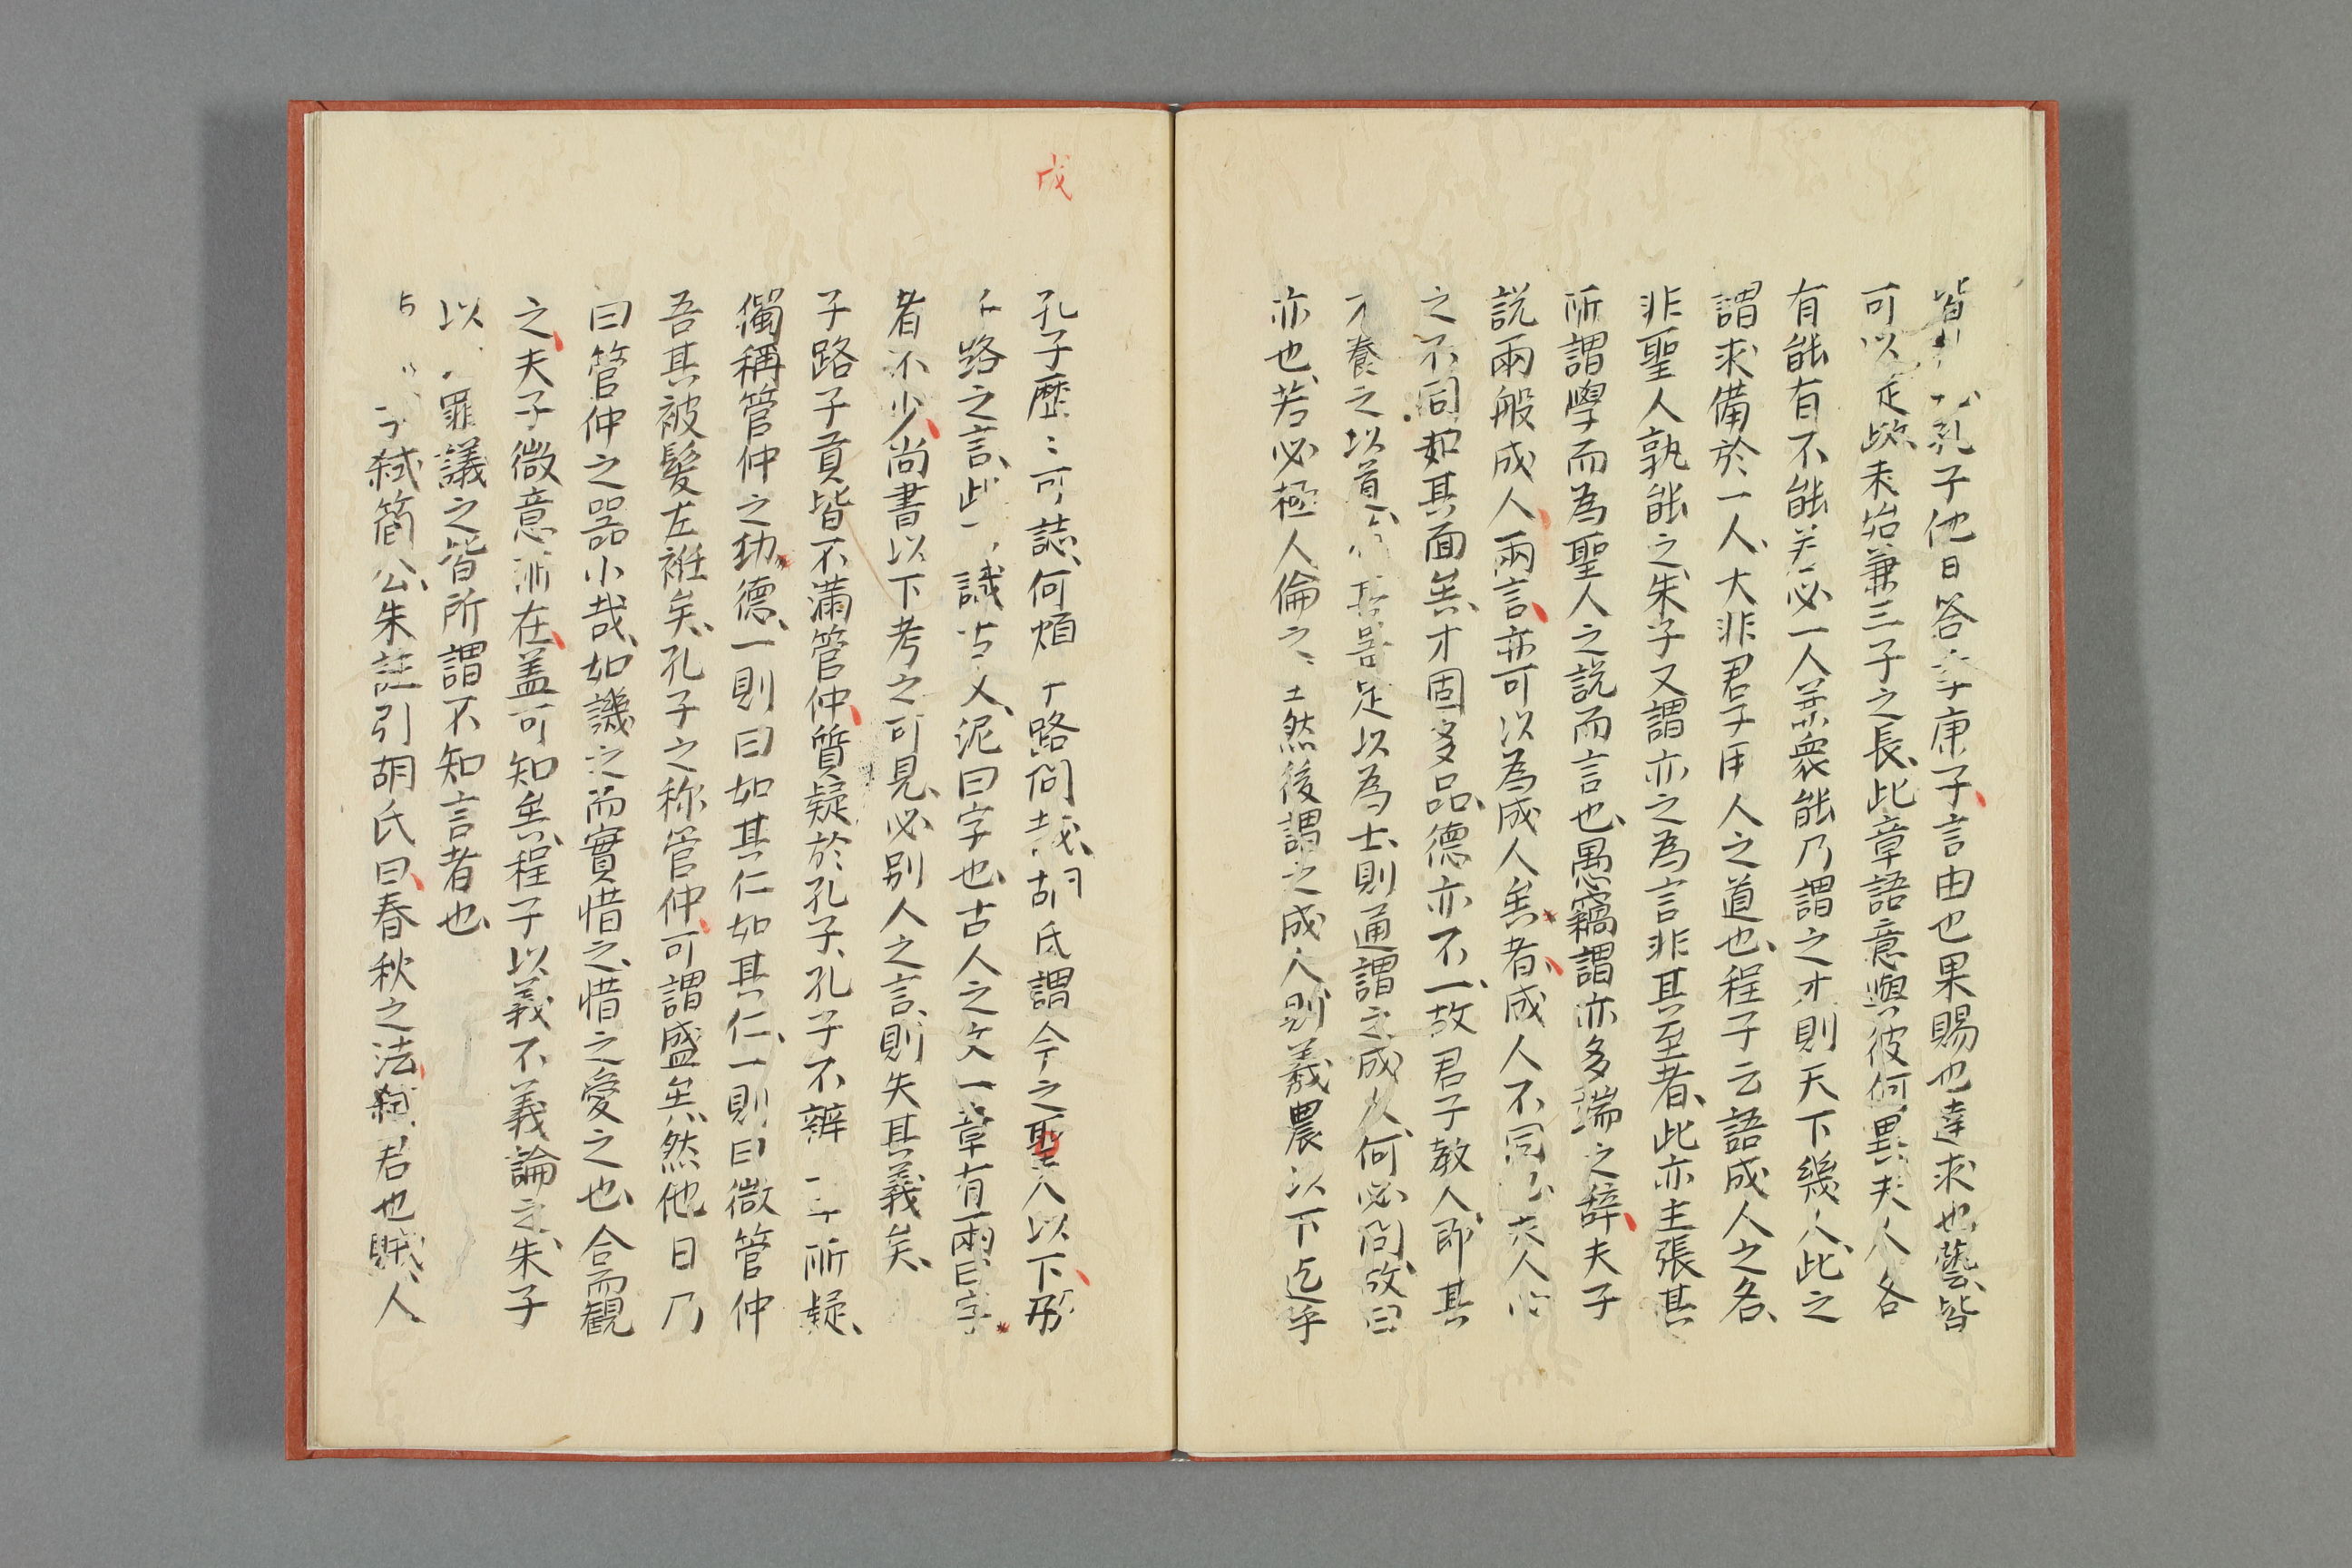 皆 孔子他日答季康子言由也果賜也達求也藝皆
可以 是 未始兼三子之長此章語意與彼何異夫人各
有能有不能 必一人 衆能乃謂之才則天下幾人此之
謂求備於一人大非君子用人之道也程子云語成人之名
非聖人孰能之朱子又謂亦之為言非其至者此亦主張其
所謂學而為聖人之說而言也愚竊謂亦多端之辞夫子
説兩般成人兩言亦可以為成人矣者成人不同 夫人心
之不同如其面矣才固多品德亦不一故君子教人即其
才養之以道 善足以為士則通謂之成人何必 故曰
亦也若必極人倫之 然後謂之成人則羲農以下迄乎
成
孔子歴〻可誌何煩子路問哉胡氏謂今之聖人以下 
子路之言此 人泥曰字也古人之文一章有兩曰字
者不少尚書以下考之可見必別人之言則失其義矣
子路子貢皆不滿管仲質疑於孔子孔子不辨二子所疑
獨稱管仲之功德一則曰如其仁如其仁一則曰微管仲
吾其被髪左袵矣孔子之称管仲可謂盛矣然他日乃
曰管仲之器小哉如譏之而實惜之惜之愛之也合而観
之夫子微意所在蓋可知矣程子以義不義論之朱子
以 罪議之皆所謂不知言者也
子弑簡公朱註引胡氏曰春秋之法弑君也賊人